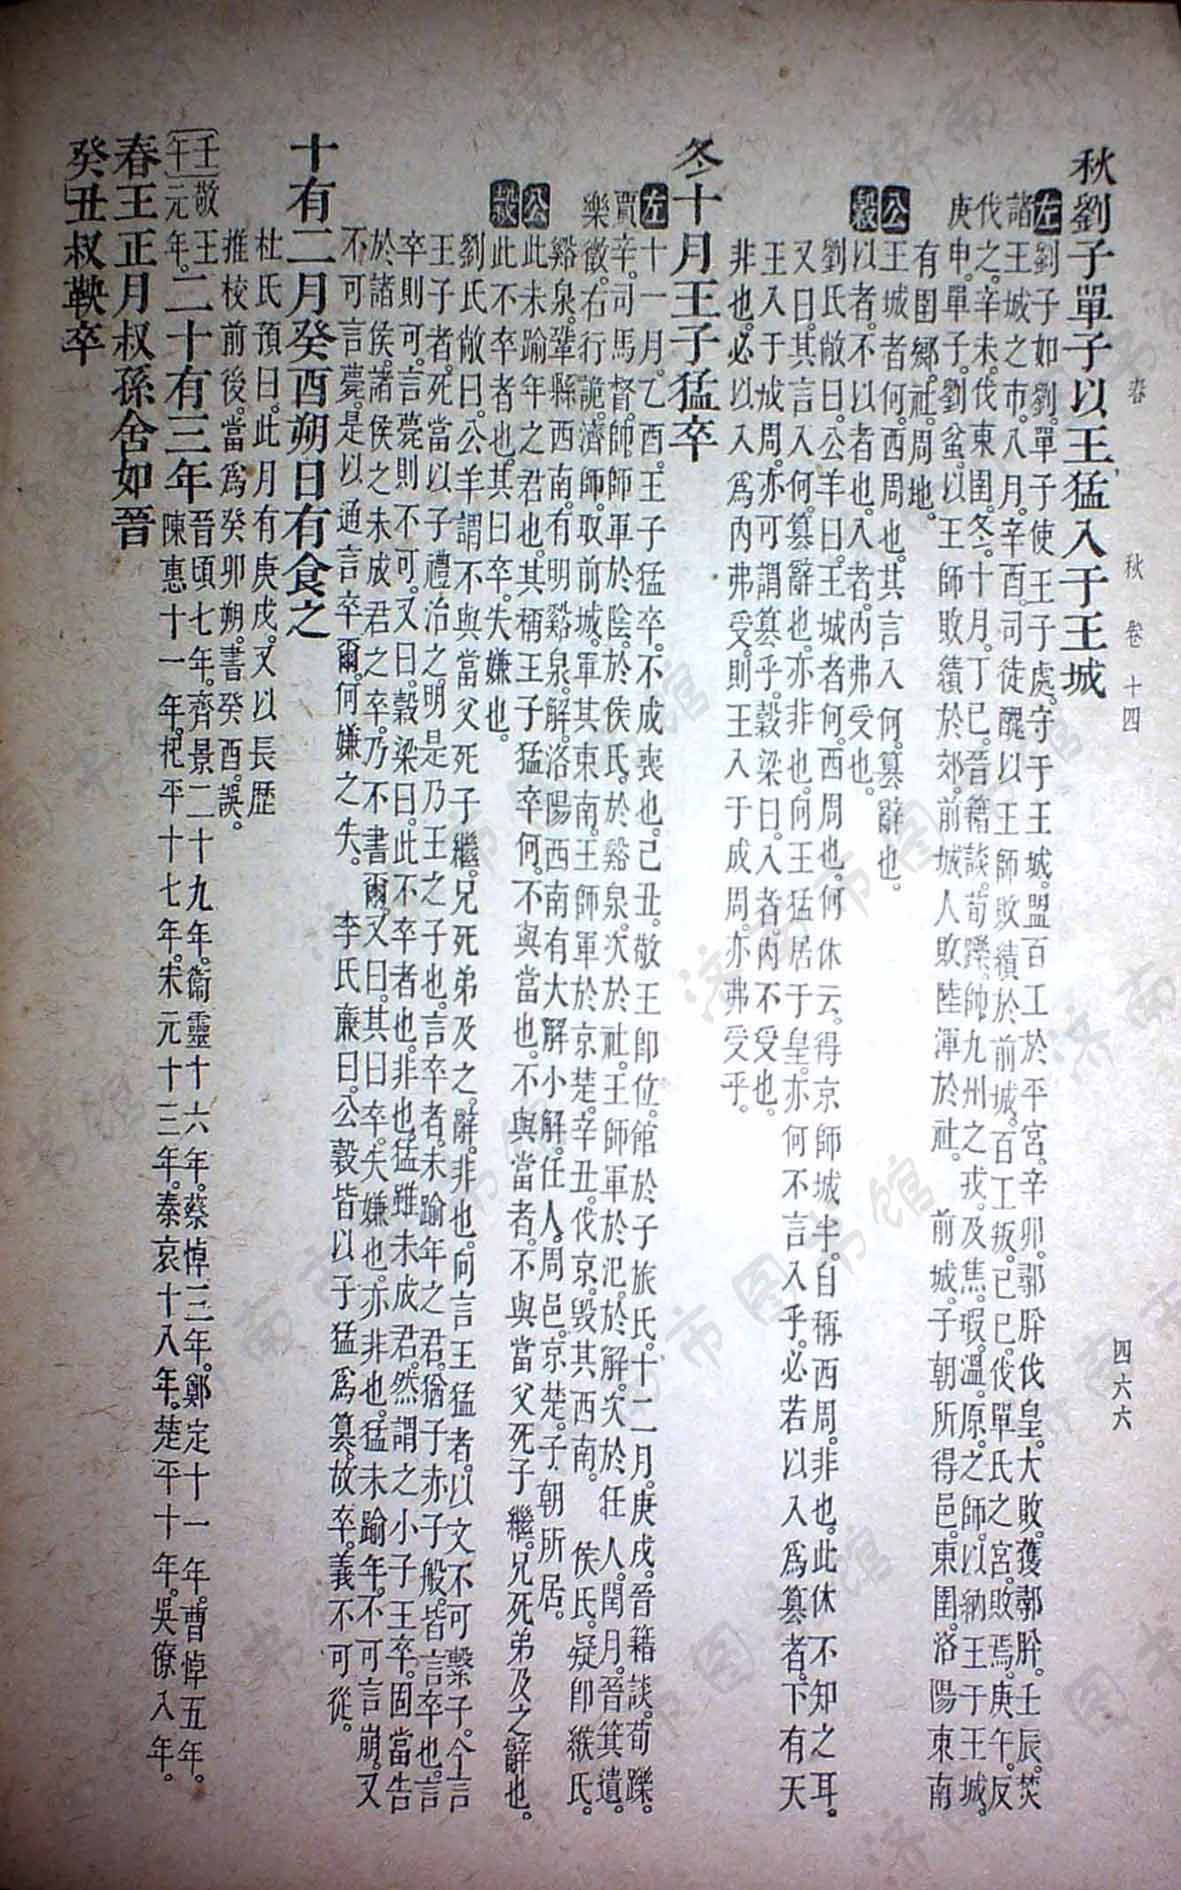 春秋卷十四
四六六
秋劉子單子以王猛入于王城
左劉子如劉單子使王子處守于王城盟百工於平宮辛卯鄩肸伐皇大敗獲鄩肸壬辰焚
諸王城之市八月辛酉司徒醜以王師敗績於前城百工叛己巳伐單氏之宮敗焉庚午反
伐之辛未伐東圉冬十月丁巳晉籍談荀躒帥九州之戎及焦瑕溫原之師以納王于王城
庚申單子劉蚠以王師敗績於郊前城人敗陸渾於社。前城子朝所得邑東圉洛陽東南
有圉鄉社周地。
公王城者何西周也其言入何篡辭也。
穀以者不以者也入者內弗受也。
劉氏敞曰公羊曰王城者何西周也何休云得京師城半自稱西周非也此休不知之耳。
又曰其言入何篡辭也亦非也向王猛居于皇亦何不言入乎必若以入爲篡者下有天
王入于成周亦可謂篡乎穀梁曰入者內不受也。
非也必以入爲內弗受則王入于成周亦弗受乎。
冬十月王子猛卒
左十一月乙酉王子猛卒不成喪也己丑敬王卽位館於子旅氏十二月庚戌晉籍談荀躒。
賈辛司馬督帥師軍於陰於侯氏於谿泉次於社王師軍於氾於解次於任人閏月晉箕遺。
樂徵右行詭濟師取前城軍其東南王師軍於京楚辛丑伐京毀其西南。侯氏疑卽緱氏。
谿泉鞏縣西南有明谿泉解洛陽西南有大解小解任人周邑京楚子朝所居。
公此未踰年之君也其稱王子猛卒何不與當也不與當者不與當父死子繼兄死弟及之辭也。
穀此不卒者也其曰卒失嫌也。
劉氏敞曰公羊謂不與當父死子繼兄死弟及之辭非也向言王猛者以文不可繫子今言
王子者死當以子禮治之明是乃王之子也言卒者未踰年之君猶子赤子般皆言卒也言
卒則可言薨則不可又曰穀梁曰此不卒者也非也猛雖未成君然謂之小子王卒固當告
於諸侯諸侯之未成君之卒乃不書爾又曰其曰卒失嫌也亦非也猛未踰年不可言崩又
不可言薨是以通言卒爾何嫌之失。李氏廉曰公穀皆以子猛爲篡故卒義不可從。
十有二月癸酉朔日有食之
杜氏預曰此月有庚戌又以長歷
推校前後當爲癸卯朔書癸酉誤。
壬午敬王元年。二十有三年晉頃七年齊景二十九年衞靈十六年蔡悼三年鄭定十一年曹悼五年。
陳惠十一年杞平十七年宋元十三年秦哀十八年楚平十年吳僚八年。
春王正月叔孫舍如晉
癸丑叔鞅卒